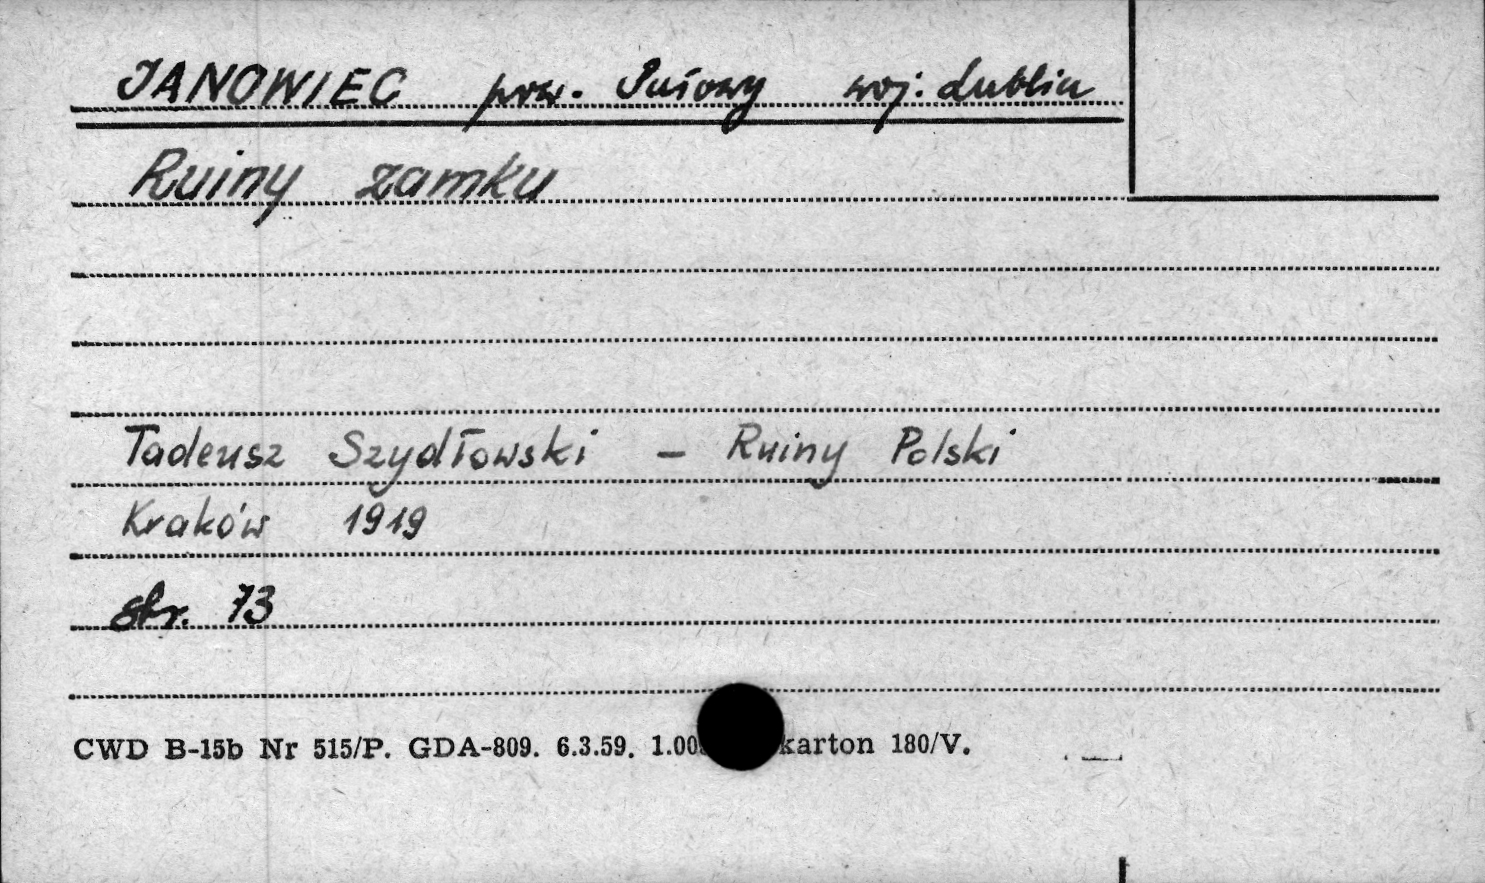 JANOWIEC pow. Puławy woj. Lublin
Ruiny zamku
Tadeusz Szydłowski - Ruiny Polski
Kraków 1919
str. 73
CWD B-15b Nr 515/P. GDA-809. 6.3.59. karton 180/V.